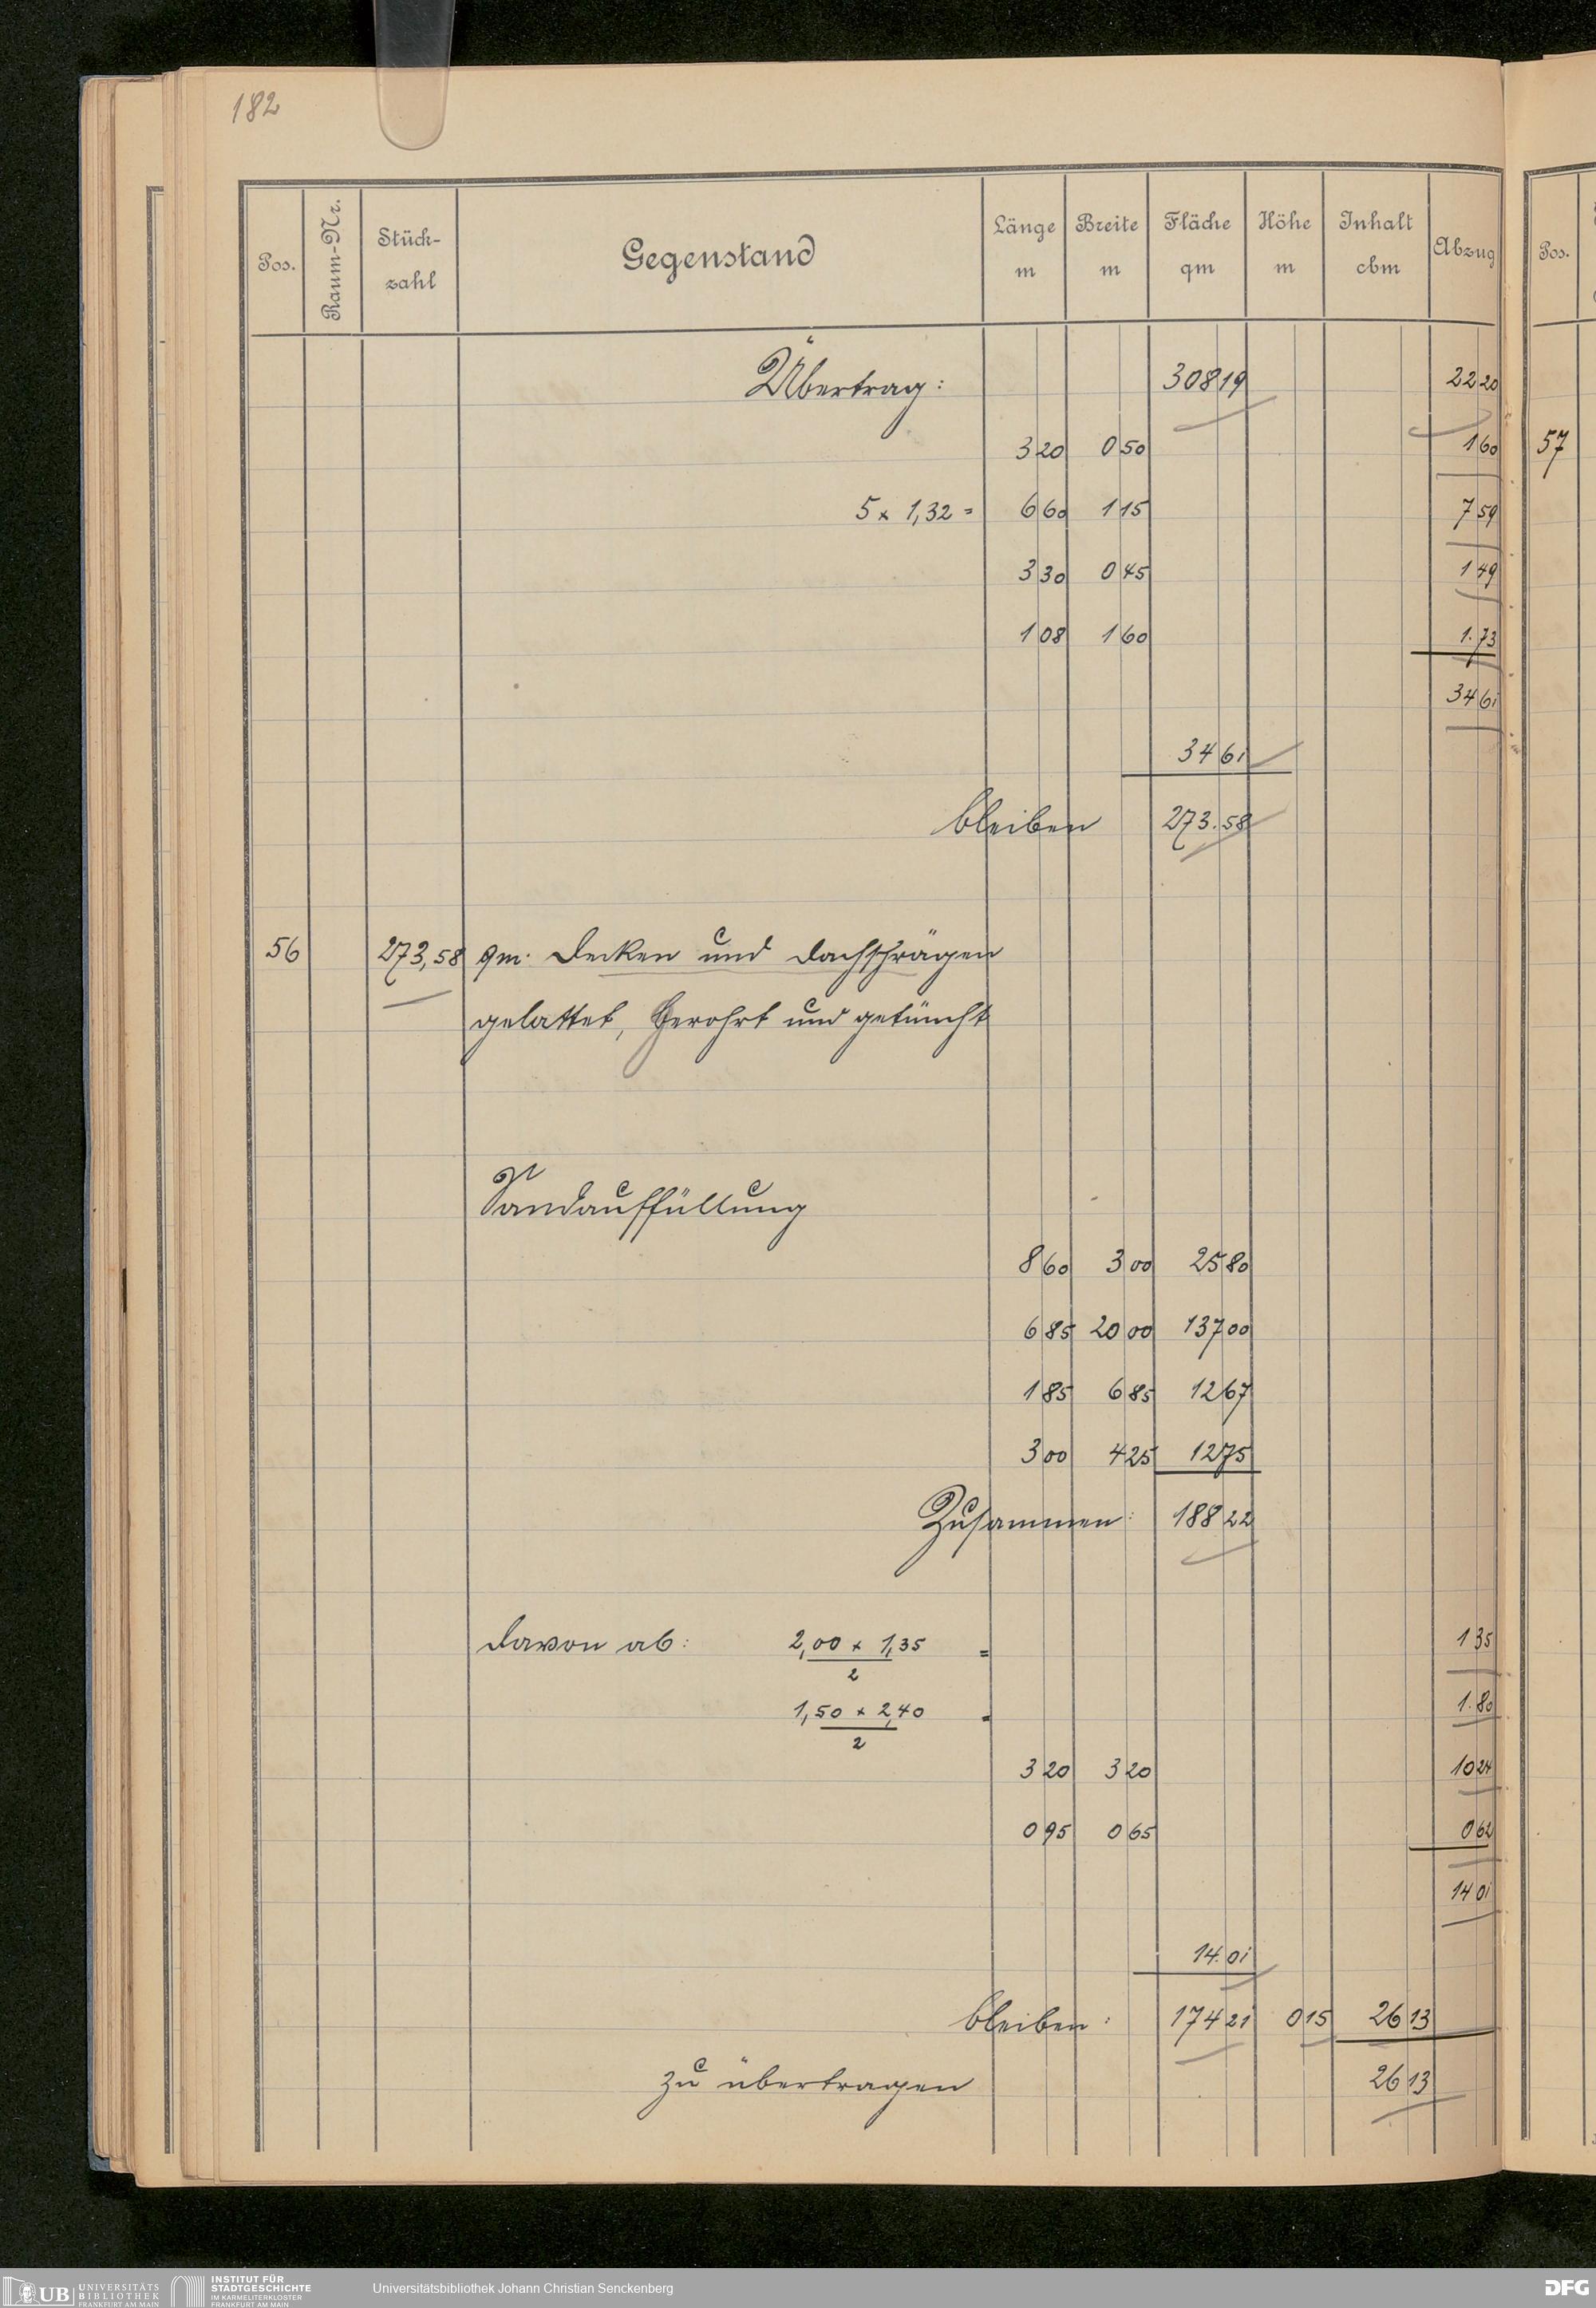 182
Pos. Raum-Nr. Stück-zahl Gegenstand Länge m Breite m Fläche qm Höhe m Inhalt cbm Abzug Pos.
Übertrag: 308 19 22 20
3 20 0 50 1 60 57
5 x 1,32 = 6 60 1 15 7 59
3 30 0 45 1 49
1 08 1 60 1.73
34 61
34 61
bleiben 273.58
56 273,58 qm. Decken und Dachschrägen
gelattet, gerohrt und getüncht
Sandauffüllung
8 60 3 00 25 80
6 85 20 00 137 00
1 85 6 85 12 67
3 00 4 25 12 75
Zusammen: 188 22
Davon ab: 2,00 x 1,35 / 2 = 1 35
1,50 x 2,40 / 2 = 1.80
3 20 3 20 10 24
0 95 0 65 0 62
14 01
14.01
bleiben: 174 21 0 15 26 13
zu übertragen 26 13
UB UNIVERSITÄTS BIBLIOTHEK FRANKFURT AM MAIN
INSTITUT FÜR STADTGESCHICHTE IM KARMELITERKLOSTER FRANKFURT AM MAIN
Universitätsbibliothek Johann Christian Senckenberg
DFG